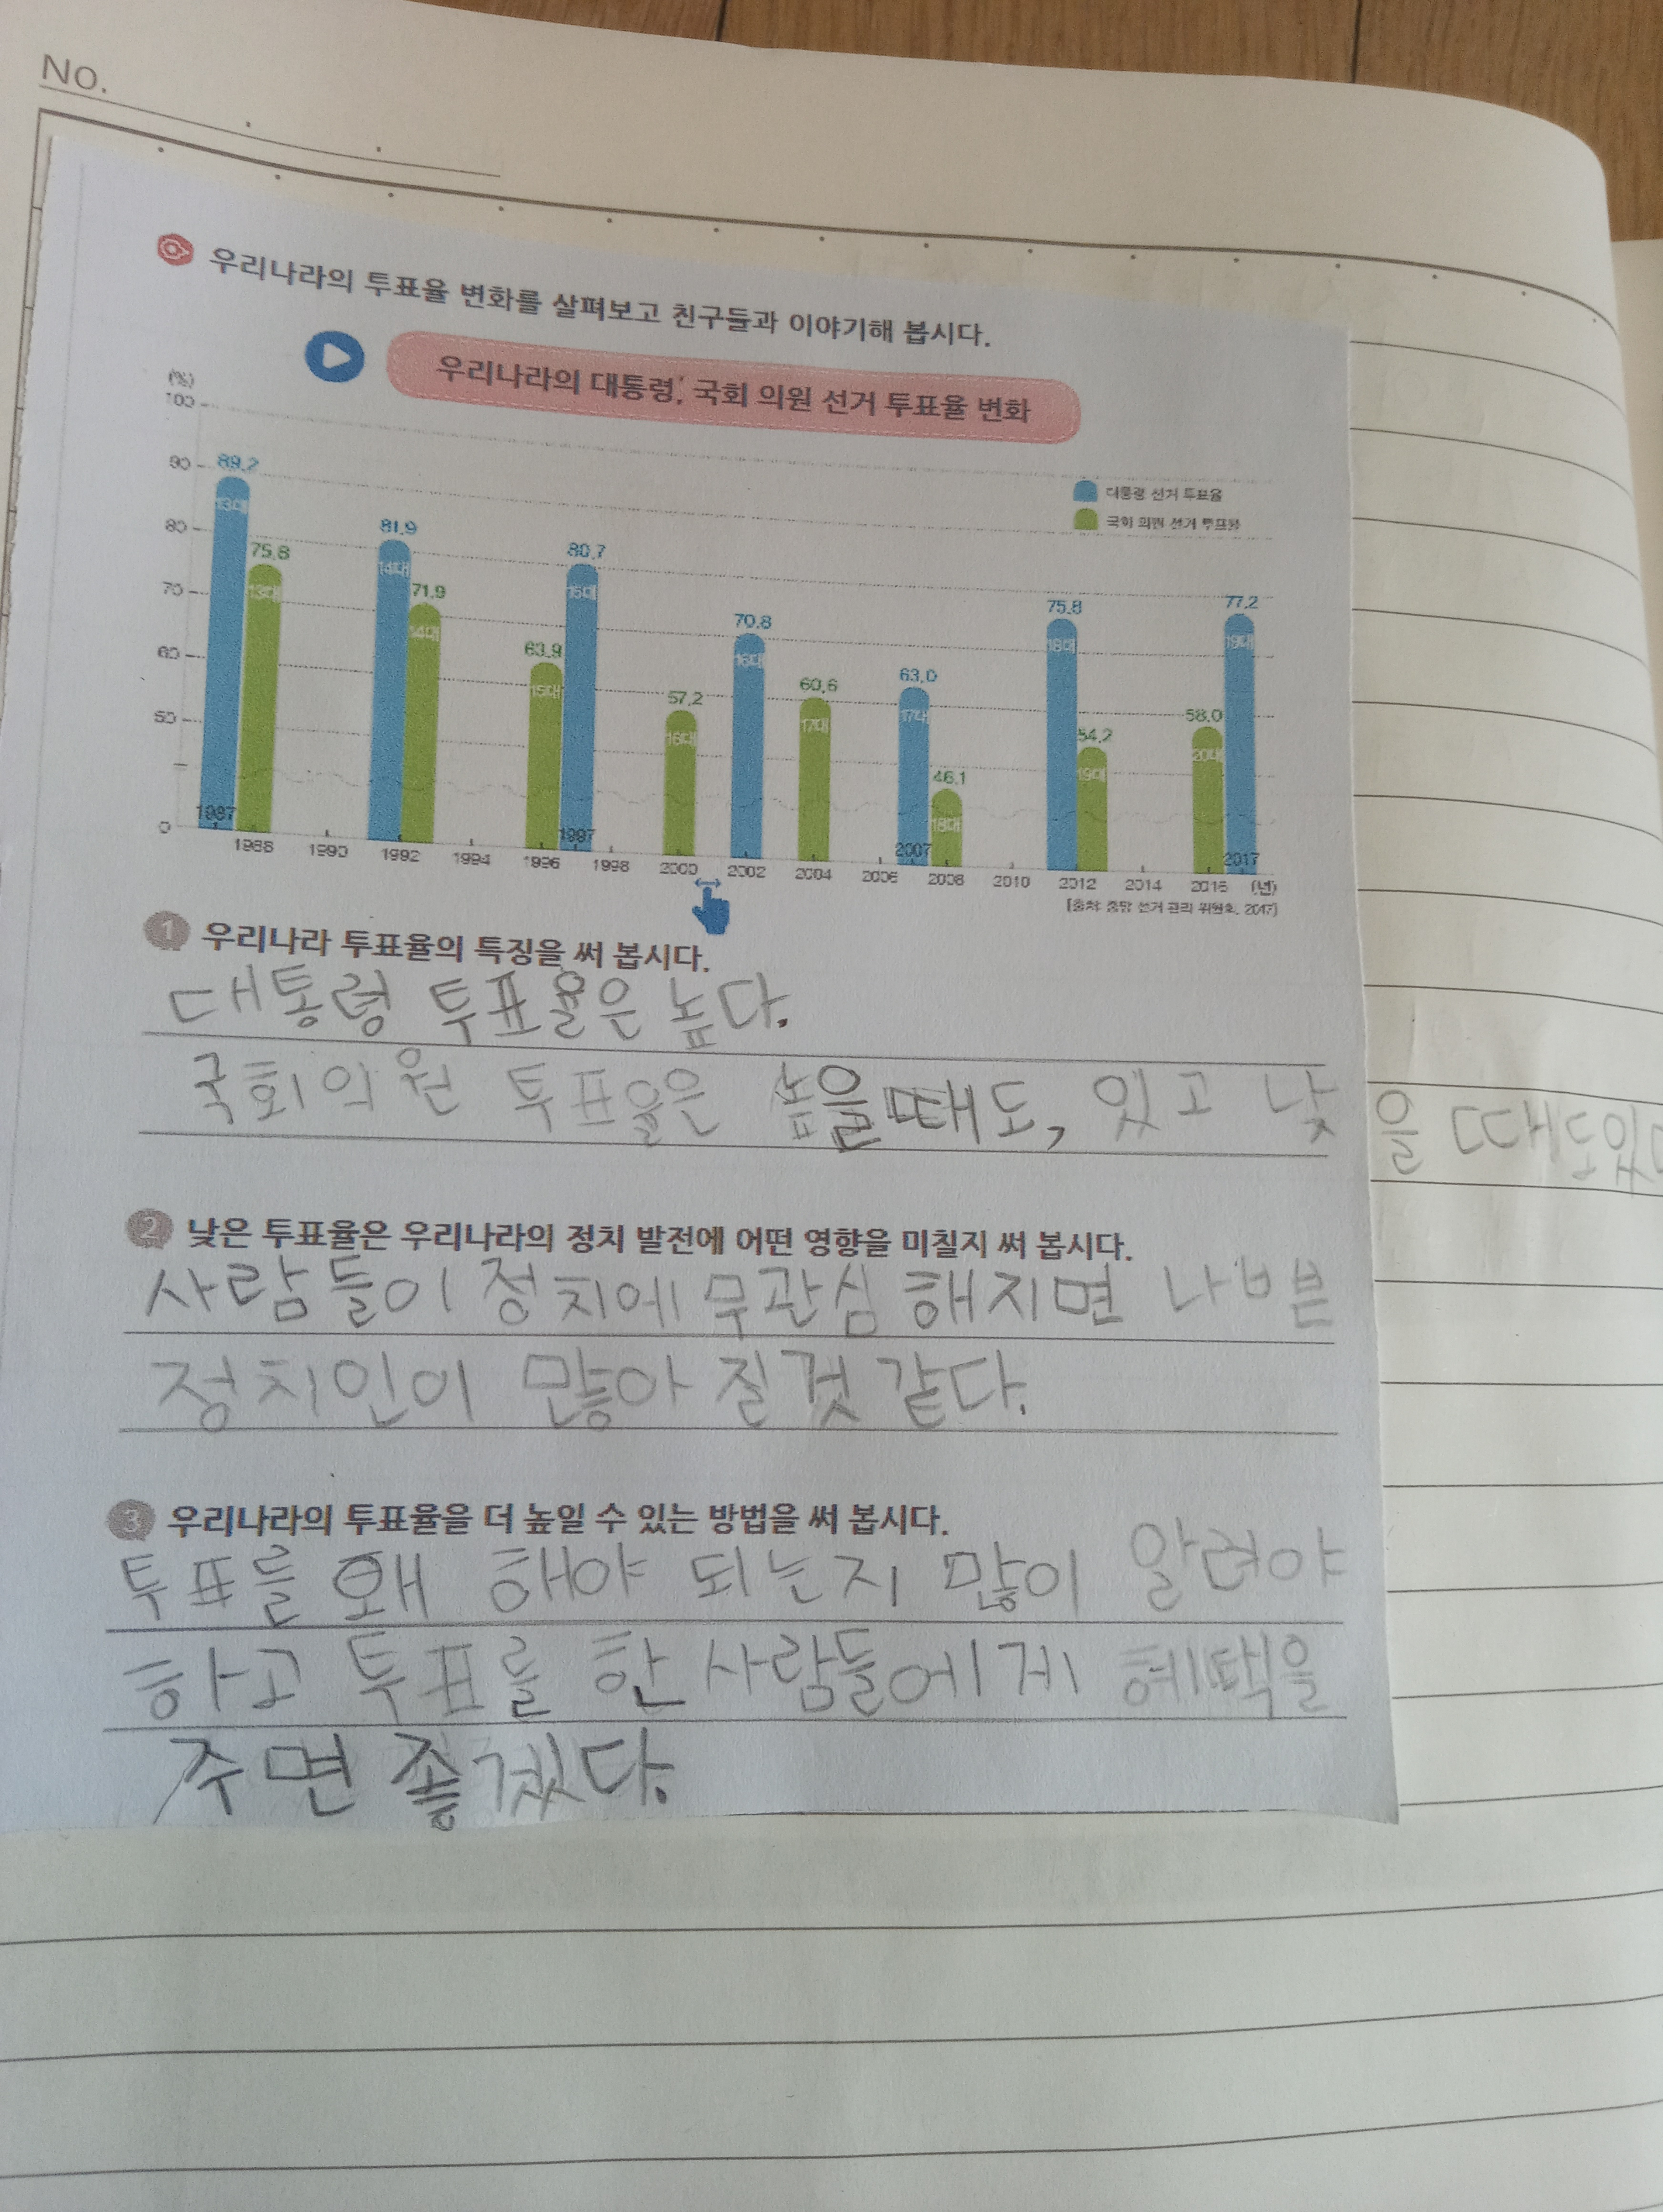 No.
우리나라의 투표율 변화를 살펴보고 친구들과 이야기해 봅시다.
우리나라의 대통령, 국회 의원 선거 투표율 변화
(%)
100
90
80
70
60
50
0
대통령 선거 투표율
국회 의원 선거 투표율
89.2 75.8 81.9 71.9 63.9 80.7 57.2 70.8 60.6 63.0 46.1 75.8 54.2 58.0 77.2
13대 13대 14대 14대 15대 15대 16대 16대 17대 17대 18대 18대 19대 20대 19대
1987 1997 2007 2017
1988 1990 1992 1994 1996 1998 2000 2002 2004 2006 2008 2010 2012 2014 2016 (년)
[출처: 중앙 선거 관리 위원회, 2017]
1 우리나라 투표율의 특징을 써 봅시다.
대통령 투표율은 높다.
국회의원 투표율은 높을때도, 있고 낮을 때도있다
2 낮은 투표율은 우리나라의 정치 발전에 어떤 영향을 미칠지 써 봅시다.
사람들이 정치에 무관심 해지면 나쁜
정치인이 많아 질것 같다.
3 우리나라의 투표율을 더 높일 수 있는 방법을 써 봅시다.
투표를 왜 해야 되는지 많이 알려야
하고 투표를 한 사람들에게 혜택을
주면 좋겠다.